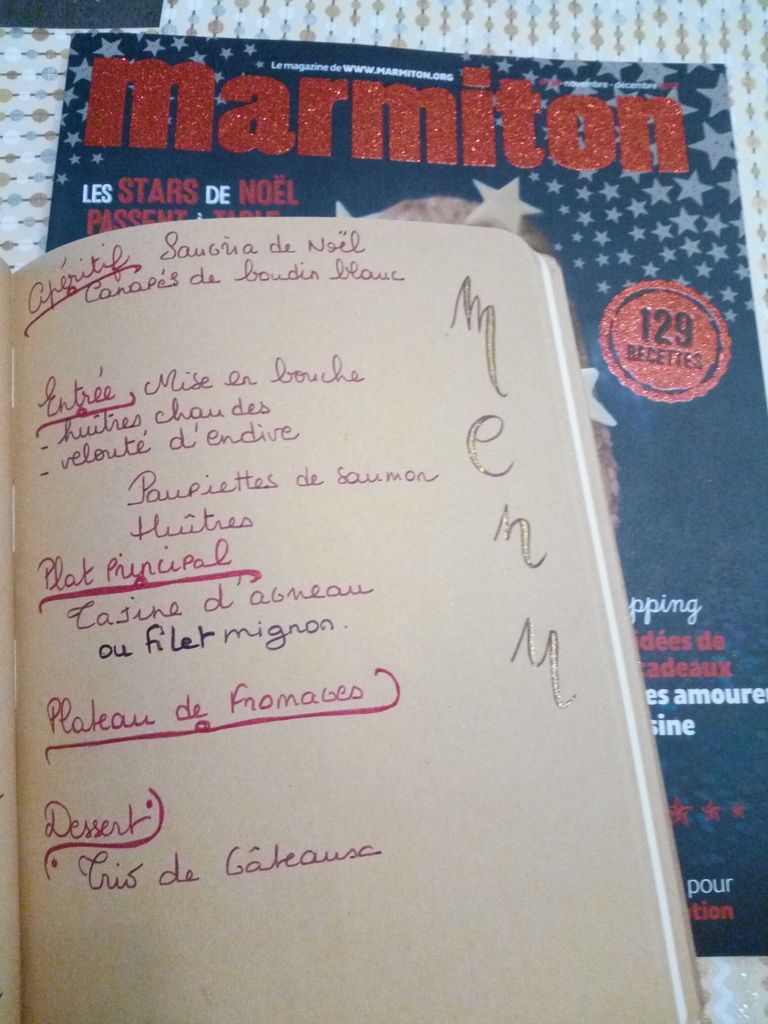 Le magazine de WWW.MARMITON.ORG
novembre - décembre
marmiton
LES STARS DE NOËL
PASSENT à TABLE
129
RECETTES
pping
idées de
cadeaux
es amoure
sine
pour
ption
Menu
Apéritif Sangria de Noël
Canapés de boudin blanc
Entrée, Mise en bouche
- huîtres chaudes
- velouté d'endive
Paupiettes de saumon
Huîtres
Plat Principal
Tajine d'agneau
ou filet mignon.
Plateau de Fromages
Dessert
Trio de Gâteaux